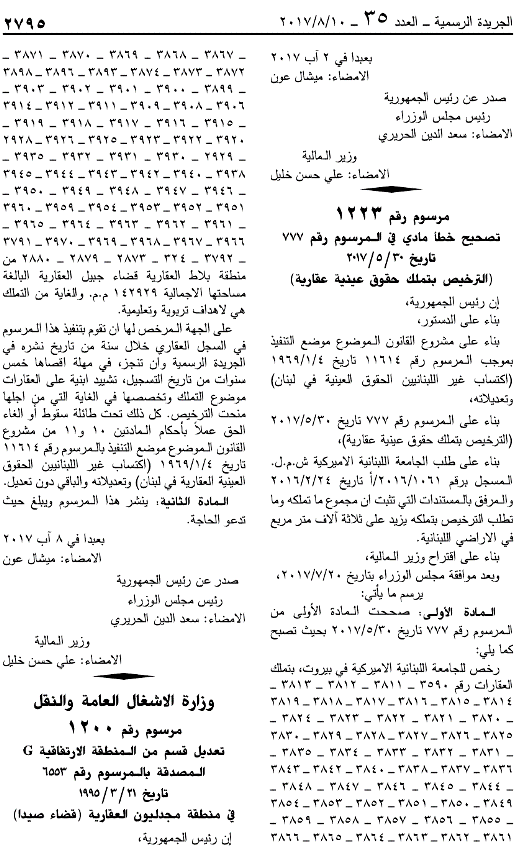 الجريدة الرسمية ــ العدد ٣٥ ــ ٢٠١٧/٨/١٠
٢٧٩٥
بعبدا في ٢ آب ٢٠١٧
الامضاء: ميشال عون
صدر عن رئيس الجمهورية
رئيس مجلس الوزراء
الامضاء: سعد الدين الحريري
وزير المالية
الامضاء: علي حسن خليل
مرسوم رقم ١٢٢٣
تصحيح خطأ مادي في المرسوم رقم ٧٧٧
تاريخ ٢٠١٧/٥/٣٠
(الترخيص بتملك حقوق عينية عقارية)
إن رئيس الجمهورية،
بناء على الدستور،
بناء على مشروع القانون الموضوع موضع التنفيذ
بموجب المرسوم رقم ١١٦١٤ تاريخ ١٩٦٩/١/٤
(اكتساب غير اللبنانيين الحقوق العينية في لبنان)
وتعديلاته،
بناء على المرسوم رقم ٧٧٧ تاريخ ٢٠١٧/٥/٣٠
(الترخيص بتملك حقوق عينية عقارية)،
بناء على طلب الجامعة اللبنانية الاميركية ش.م.ل.
المسجل برقم ٢٠١٦/١٠٦١/أ تاريخ ٢٠١٦/٢/٢٤
والمرفق بالمستندات التي تثبت ان مجموع ما تملكه وما
تطلب الترخيص بتملكه يزيد على ثلاثة آلاف متر مربع
في الاراضي اللبنانية.
بناء على اقتراح وزير المالية،
وبعد موافقة مجلس الوزراء بتاريخ ٢٠١٧/٧/٢٠،
يرسم ما يأتي:
المادة الأولى: صححت المادة الأولى من
المرسوم رقم ٧٧٧ تاريخ ٢٠١٧/٥/٣٠ بحيث تصبح
كما يلي:
رخص للجامعة اللبنانية الاميركية في بيروت، بتملك
العقارات رقم ٣٥٩٠ ــ ٣٨١١ ــ ٣٨١٢ ــ ٣٨١٣ ــ
٣٨١٤ ــ ٣٨١٥ ــ ٣٨١٦ ــ ٣٨١٧ ــ ٣٨١٨ ــ ٣٨١٩
ــ ٣٨٢٠ ــ ٣٨٢١ ــ ٣٨٢٢ ــ ٣٨٢٣ ــ ٣٨٢٤ ــ
٣٨٢٥ ــ ٣٨٢٦ ــ ٣٨٢٧ ــ ٣٨٢٨ ــ ٣٨٢٩ ــ ٣٨٣٠
ــ ٣٨٣١ ــ ٣٨٣٢ ــ ٣٨٣٣ ــ ٣٨٣٤ ــ ٣٨٣٥ ــ
٣٨٣٦ ــ ٣٨٣٧ ــ ٣٨٣٨ ــ ٣٨٤٠ ــ ٣٨٤٢ ــ ٣٨٤٣
ــ ٣٨٤٤ ــ ٣٨٤٥ ــ ٣٨٤٦ ــ ٣٨٤٧ ــ ٣٨٤٨ ــ
٣٨٤٩ ــ ٣٨٥٠ ــ ٣٨٥١ ــ ٣٨٥٢ ــ ٣٨٥٣ ــ ٣٨٥٤
ــ ٣٨٥٥ ــ ٣٨٥٦ ــ ٣٨٥٧ ــ ٣٨٥٨ ــ ٣٨٥٩ ــ
٣٨٦١ ــ ٣٨٦٢ ــ ٣٨٦٣ ــ ٣٨٦٤ ــ ٣٨٦٥ ــ ٣٨٦٦
ــ ٣٨٦٧ ــ ٣٨٦٨ ــ ٣٨٦٩ ــ ٣٨٧٠ ــ ٣٨٧١ ــ
٣٨٧٢ ــ ٣٨٧٣ ــ ٣٨٧٤ ــ ٣٨٩٣ ــ ٣٨٩٦ ــ ٣٨٩٨
ــ ٣٨٩٩ ــ ٣٩٠٠ ــ ٣٩٠١ ــ ٣٩٠٢ ــ ٣٩٠٣ ــ
٣٩٠٦ ــ ٣٩٠٨ ــ ٣٩٠٩ ــ ٣٩١١ ــ ٣٩١٢ ــ ٣٩١٤
ــ ٣٩١٥ ــ ٣٩١٦ ــ ٣٩١٧ ــ ٣٩١٨ ــ ٣٩١٩ ــ
٣٩٢٠ ــ ٣٩٢٢ ــ ٣٩٢٣ ــ ٣٩٢٥ ــ ٣٩٢٦ ــ ٢٩٢٨
ــ ٢٩٢٩ ــ ٣٩٣٠ ــ ٣٩٣١ ــ ٣٩٣٢ ــ ٣٩٣٥ ــ
٣٩٣٨ ــ ٣٩٤٠ ــ ٣٩٤٢ ــ ٣٩٤٣ ــ ٣٩٤٤ ــ ٣٩٤٥
ــ ٣٩٤٦ ــ ٣٩٤٧ ــ ٣٩٤٨ ــ ٣٩٤٩ ــ ٣٩٥٠ ــ
٣٩٥١ ــ ٣٩٥٢ ــ ٣٩٥٣ ــ ٣٩٥٤ ــ ٣٩٥٩ ــ ٣٩٦٠
ــ ٣٩٦١ ــ ٣٩٦٢ ــ ٣٩٦٣ ــ ٣٩٦٤ ــ ٣٩٦٥ ــ
٣٩٦٦ ــ ٣٩٦٧ ــ ٣٩٦٨ ــ ٣٩٦٩ ــ ٣٩٧٠ ــ ٣٧٩١
ــ ٣٧٩٢ ــ ٣٢٤ ــ ٢٨٧٣ ــ ٢٨٧٩ ــ ٢٨٨٠ من
منطقة بلاط العقارية قضاء جبيل العقارية البالغة
مساحتها الاجمالية ١٤٢٩٢٩ م.م. والغاية من التملك
هي لاهداف تربوية وتعليمية.
على الجهة المرخص لها ان تقوم بتنفيذ هذا المرسوم
في السجل العقاري خلال سنة من تاريخ نشره في
الجريدة الرسمية وأن تنجز، في مهلة اقصاها خمس
سنوات من تاريخ التسجيل، تشييد ابنية على العقارات
موضوع التملك وتخصصها في الغاية التي من اجلها
منحت الترخيص. كل ذلك تحت طائلة سقوط أو الغاء
الحق عملاً بأحكام المادتين ١٠ و١١ من مشروع
القانون الموضوع موضع التنفيذ بالمرسوم رقم ١١٦١٤
تاريخ ١٩٦٩/١/٤ (اكتساب غير اللبنانيين الحقوق
العينية العقارية في لبنان) وتعديلاته والباقي دون تعديل.
المادة الثانية: ينشر هذا المرسوم ويبلغ حيث
تدعو الحاجة.
بعبدا في ٨ آب ٢٠١٧
الامضاء: ميشال عون
صدر عن رئيس الجمهورية
رئيس مجلس الوزراء
الامضاء: سعد الدين الحريري
وزير المالية
الامضاء: علي حسن خليل
وزارة الاشغال العامة والنقل
مرسوم رقم ١٢٠٠
تعديل قسم من المنطقة الارتفاقية G
المصدقة بالمرسوم رقم ٦٥٥٣
تاريخ ١٩٩٥/٣/٢١
في منطقة مجدليون العقارية (قضاء صيدا)
إن رئيس الجمهورية،